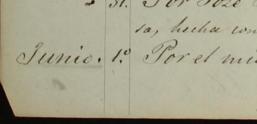 31. Por Joze
sa, hecha con
Junio. 1.º Por el mi